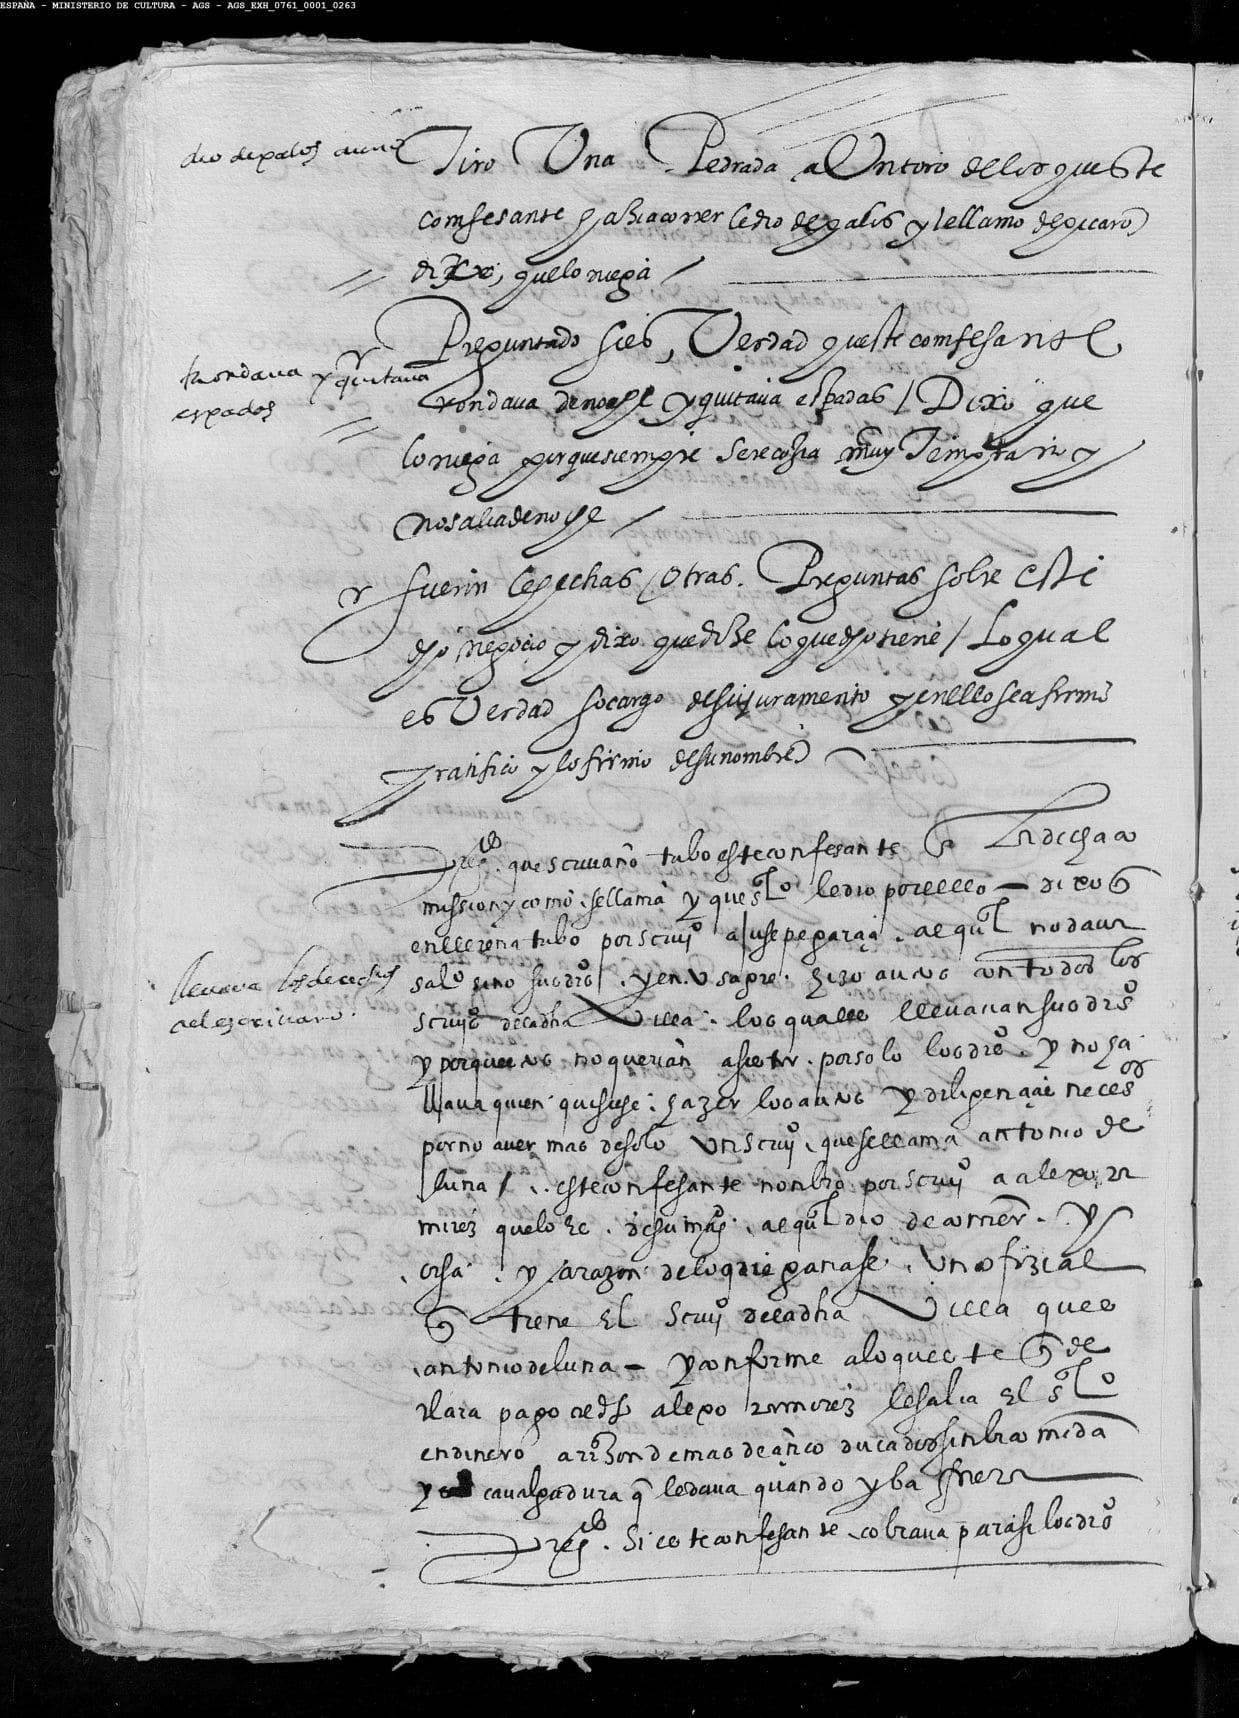 ESPAÑA - MINISTERIO DE CULTURA - AGS - AGS_EXH_0761_0001_0263
dio de palos a uno
Tiro Una Pedrada a Un toro de los que este
comfesante hazia correr le dio de palos y le llamo de picaro
dixo, que lo niega
Preguntado si es Verdad queste comfesante
rrondava y quitava
espadas
rondava de noche y quitava espadas / Dixo que
lo niega porque siempre se recohia muy Temprano y
no salia de noche
fueron le hechas otras Preguntas sobre este
dho negocio y dixo que dize lo que dho tiene / Lo qual
es Verdad so cargo de su juramento y en ello se afirmo
y ratifico y lo firmo de su nombre
preg. que scrivano tubo este confesante en la dicha co
mission y como se llama y que slo le dio por ello - dixo q
en llerena tubo por scrivo a jusepe garcia al ql no dava
salo sino sus dros y en Usagre hizo autos con todos los
llevava los derechos
del escrivano.
scrivos de la dha Villa. los quales llevavan sus dros
y porque estos no querian asistir por solo los dros y no ha
llava quien quisiese hazer los autos y diligencias neces
por no aver mas de solo Un scrivo que se llama antonio de
luna / este confesante nonbro por scrivo a alexo ra
mirez que lo hera de su mag. al ql dio de comer y
casa y a razon de lo que ganase Un ofizial
q tiene El scrivo de la dha Villa ques
antonio de luna - y conforme a lo queste q de
clara pago al dho alexo ramirez le salia El slo
en dinero a razon de mas de cinco ducados sin la comida
y cavalgadura q le dava quando yba fuera
preg. Si este confesante cobrava para si los dros